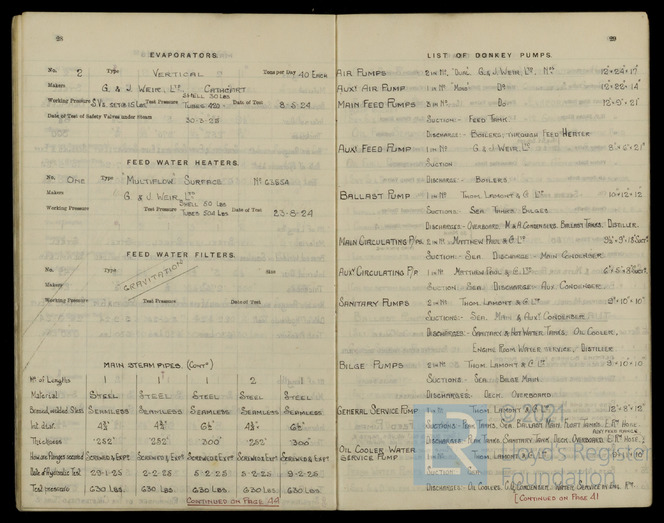 28
EVAPORATORS.
No. 2 Type VERTICAL Tons per Day 40 EACH
Makers G. & J. WEIR, LTD CATHCART
SHELL 30 LBS
Working Pressure S.V.s SET @ 15 LBS Test Pressure TUBES 420 Date of Test 8-5-24
Date of Test of Safety Valves under Steam 30-3-25
FEED WATER HEATERS.
No. ONE Type "MULTIFLOW" SURFACE No 63554
Makers G & J WEIR, LTD
SHELL 50 LBS
Working Pressure Test Pressure TUBES 504 LBS Date of Test 23-8-24
FEED WATER FILTERS.
No. Type Size
Makers GRAVITATION
Working Pressure Test Pressure Date of Test
MAIN STEAM PIPES. (CONTD)
No of Lengths 1 1 1 2 1
Material STEEL STEEL STEEL STEEL STEEL
Brazed, welded, Seamless SEAMLESS SEAMLESS SEAMLESS SEAMLESS SEAMLESS
Int. diar.
Thickness .252" .252" .300" .252" .300"
How are flanges secured SCREWED & EXPT SCREWED & EXPT SCREWED & EXPT SCREWED & EXPT SCREWED & EXPT
Date of Hydraulic Test 29-1-25 2-2-25 5-2-25 5-2-25 9-2-25
Test pressure 630 LBS. 630 LBS. 630 LBS. 630 LBS. 630 LBS
CONTINUED ON PAGE 42
29
LIST OF DONKEY PUMPS.
AIR PUMPS 2 IN No. "DUAL" G & J WEIR, LTD 12" × 24" × 17"
AUXY AIR PUMP 1 IN No "MONO" DO 12" × 22" × 14"
MAIN FEED PUMPS 3 IN No. DO 12" × 9" × 21"
SUCTION:- FEED TANK
DISCHARGE:- BOILERS, THROUGH FEED HEATER
AUXY FEED PUMP 1 IN No G. & J. WEIR, LTD 8" × 6" × 21"
SUCTION
DISCHARGE BOILERS
BALLAST PUMP 1 IN No THOM. LAMONT & Co LTD 10" × 12" × 12"
SUCTIONS:- SEA TANKS BILGES
DISCHARGES:- OVERBOARD. M. & A. CONDENSERS. BALLAST TANKS. DISTILLER.
MAIN CIRCULATING P/Ps 2 IN No. MATTHEW PAUL & Co LTD
SUCTION:- SEA. DISCHARGE:- MAIN CONDENSER.
AUXY CIRCULATING P/P 1 IN No MATTHEW PAUL & Co LTD
SUCTION SEA. DISCHARGE:- AUX. CONDENSER
SANITARY PUMPS 2 IN No THOM. LAMONT & Co LTD 9" × 10" × 10"
SUCTIONS:- SEA, MAIN & AUXY CONDENSER
DISCHARGES:- SANITARY & HOT WATER TANKS, OIL COOLER,
ENGINE ROOM WATER SERVICE, DISTILLER
BILGE PUMPS 2 IN No THOM. LAMONT & Co LTD 9" × 10" × 10"
SUCTIONS:- SEA. BILGE MAIN.
DISCHARGES:- DECK. OVERBOARD
GENERAL SERVICE PUMP THOM. LAMONT 12" × 8" × 12"
OIL COOLER WATER
SERVICE PUMP
SUCTION SEA
[CONTINUED ON PAGE 41
LR
© 2021
Lloyd's Register
Foundation